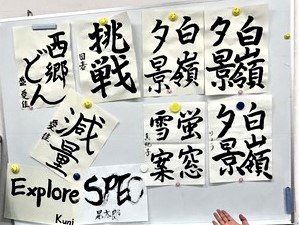 西郷
どん
愛佳
挑戦
白嶺
夕景
白嶺
夕景
減量
愛佳
蛍窓
雪案
白嶺
夕景
Explore
Kuni
SPEC